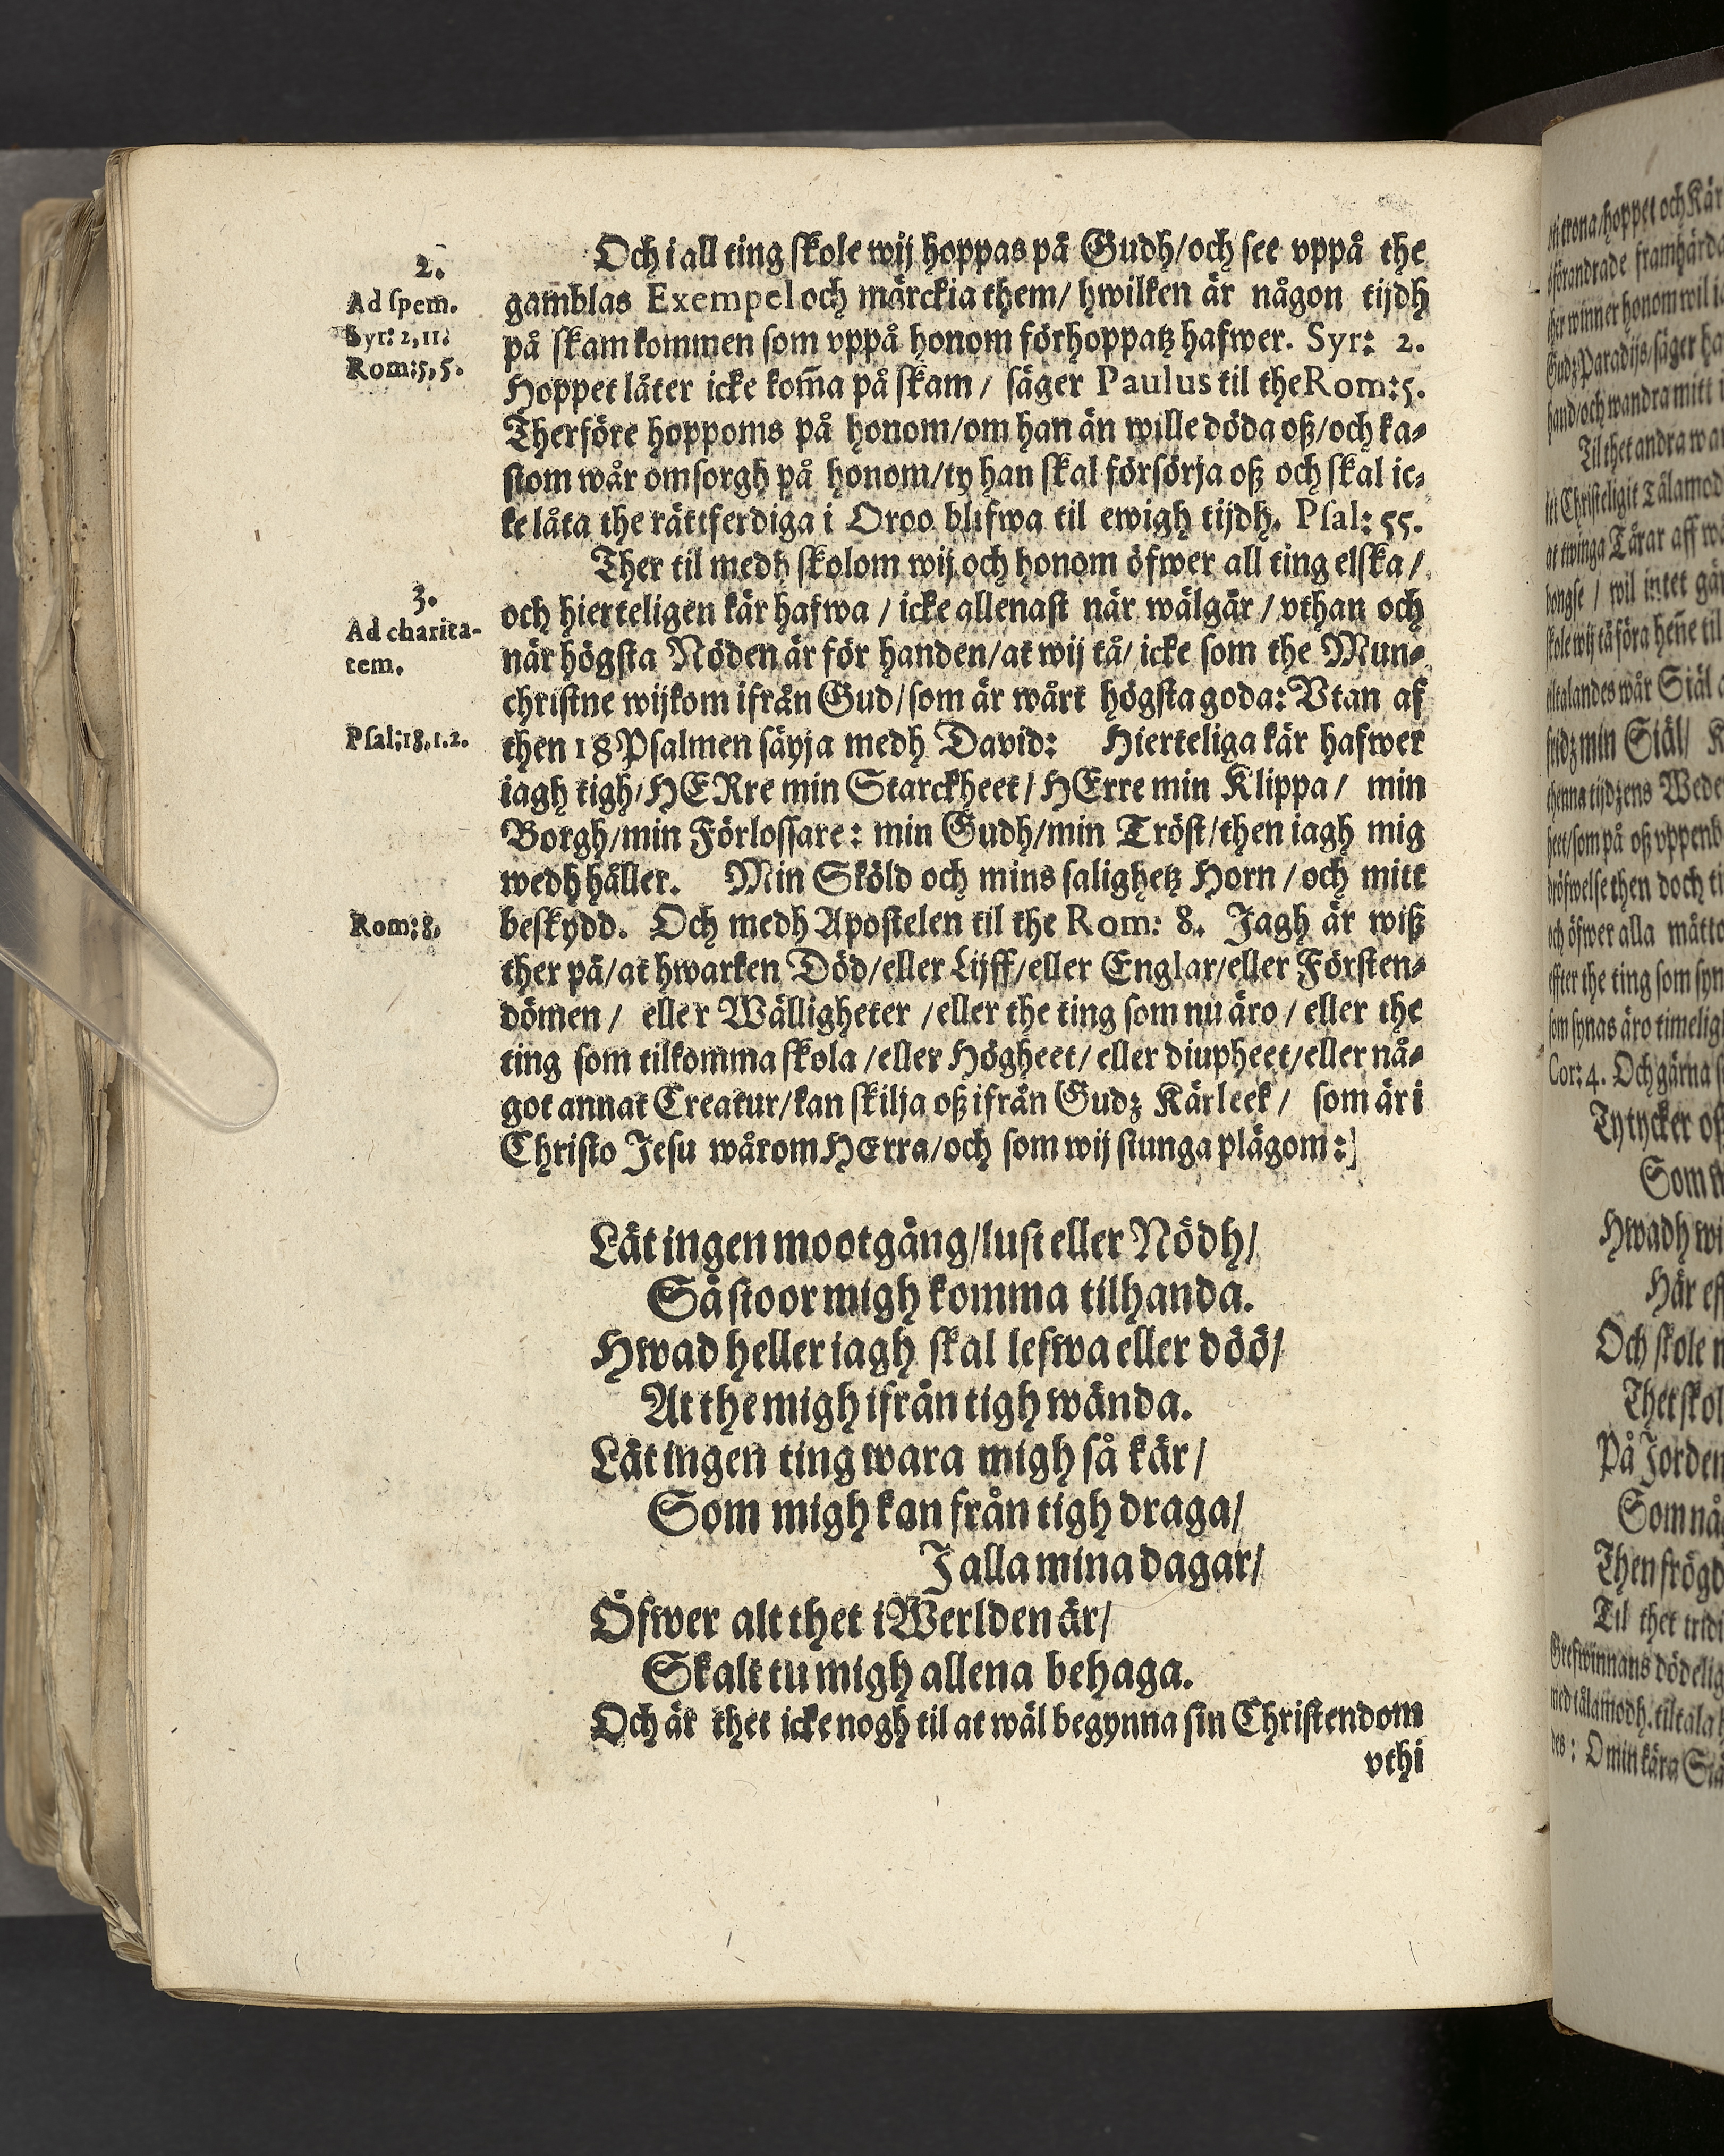 2.
Ad spem.
Syr: 2, 11.
Rom: 5, 5.
Och i all ting skole wij hoppas på Gudh/och see vppå the
gamblas Exempel och märckia them/ hwilken är någon tijdh
på skam kommen som vppå honom förhoppatz hafwer. Syr: 2.
Hoppet låter icke kom̃a på skam/ säger Paulus til the Rom: 5.
Therföre hoppoms på honom/om han än wille döda oß/och ka⸗
stom wår omsorgh på honom/ty han skal försörja oß och skal ic⸗
ke låta the rättferdiga i Oroo blifwa til ewigh tijdh. Psal: 55.
3.
Ad charita-
tem.
Ther til medh skolom wij och honom öfwer all ting elska/
och hierteligen kär hafwa/ icke allenast när wälgår/ vthan och
när högsta Nöden är för handen/at wij tå/ icke som the Mun⸗
christne wijkom ifrån Gud/som är wårt högsta goda: Vtan af
Psal: 18, 1. 2.
then 18 Psalmen säyja medh David: Hierteliga kär hafwer
iagh tigh/HERre min Starckheet/HErre min Klippa/ min
Borgh/min Förlossare: min Gudh/min Tröst/then iagh mig
wedh håller. Min Sköld och mins salighetz Horn/och mitt
Rom: 8.
beskydd. Och medh Apostelen til the Rom: 8. Jagh är wiß
ther på/at hwarken Död/eller Lijff/eller Englar/eller Försten⸗
dömen/ eller Wälligheter/eller the ting som nu äro/ eller the
ting som tilkomma skola/eller Högheet/eller diupheet/eller nå⸗
got annat Creatur/kan skilja oß ifrån Gudz Kärleek/ som är i
Christo Jesu wårom HErra/och som wij siunga plägom:]
Låt ingen mootgång/lust eller Nödh/
Så stoor migh komma tilhanda.
Hwad heller iagh skal lefwa eller döö/
At the migh ifrån tigh wända.
Låt ingen ting wara migh så kär/
Som migh kan från tigh draga/
J alla mina dagar/
Öfwer alt thet i Werlden är/
Skalt tu migh allena behaga.
Och är thet icke nogh til at wäl begynna sin Christendom
vthi